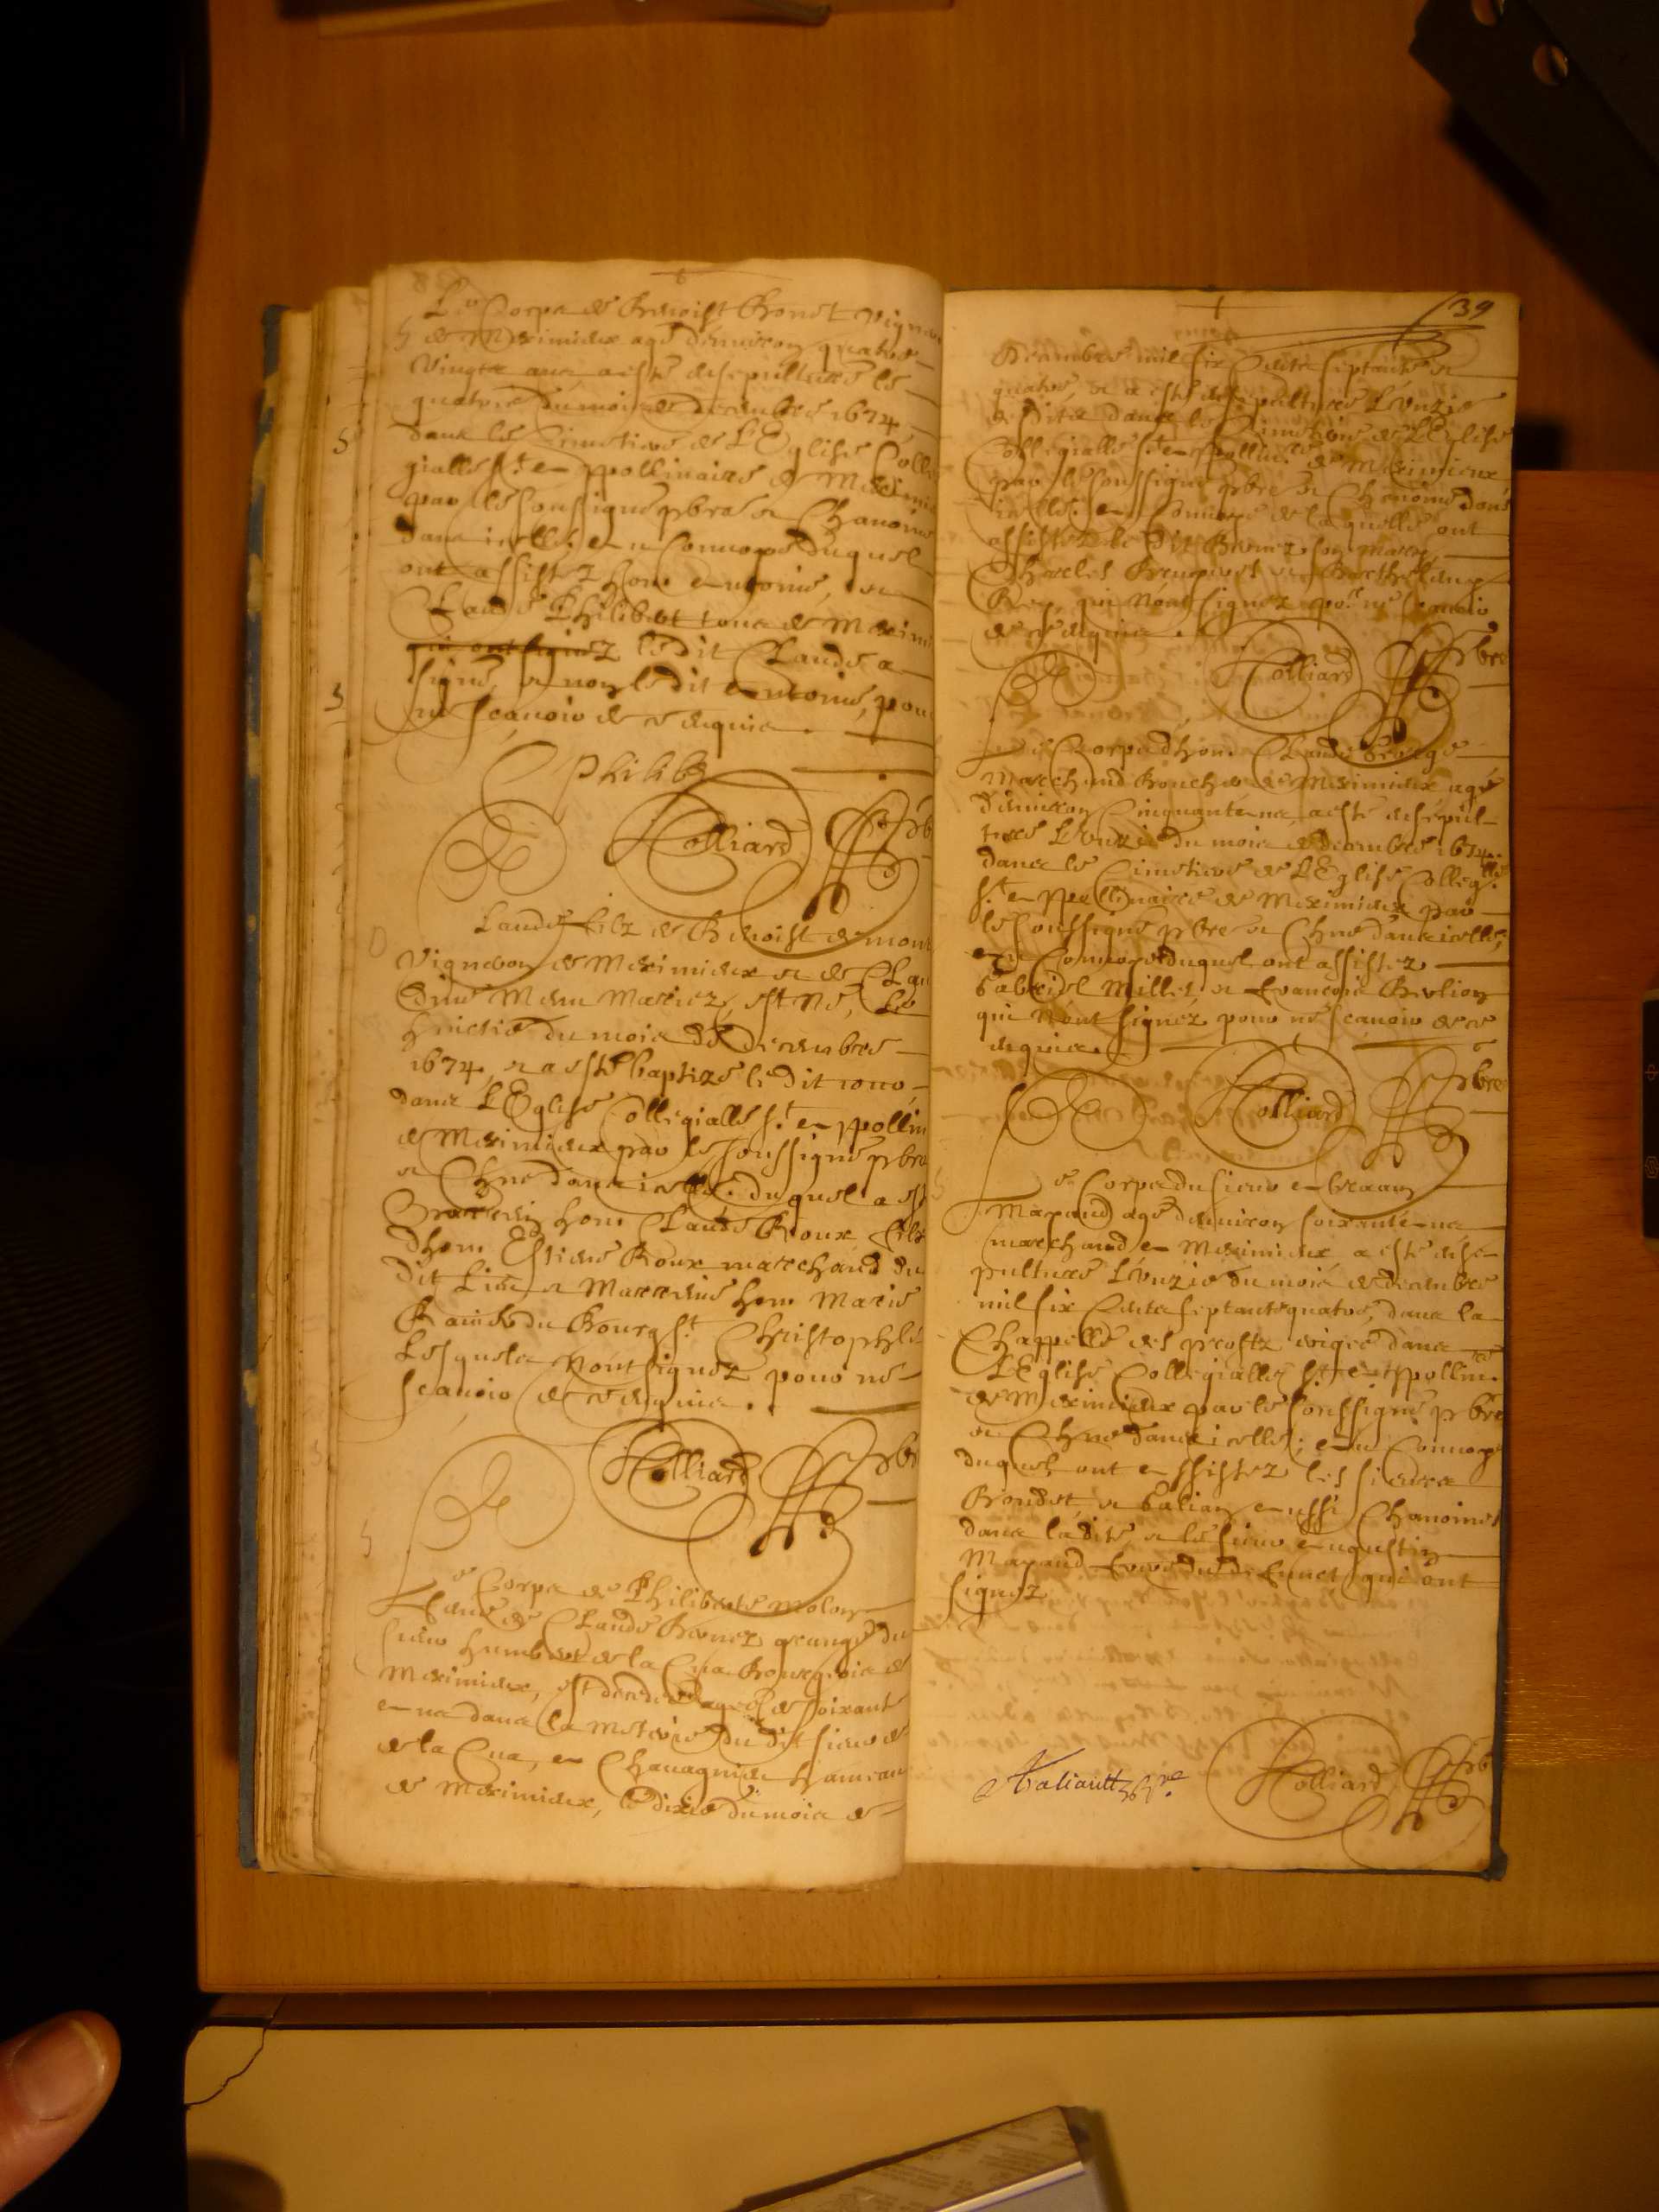 Le Corps de Benoist Bronet vigne
de Meximieux agé denviron quatre
vingts ans a esté desepulturé le
quatorze du mois de decembre 1674,
dans le Cimetiere de LEglise Colle
gialle St. Appollinaire de Meximi
par le soussigné prbre et Chanoine
dans icelle. Au Convoyé duquel
ont assistez hon. Antoine, et
Claude Philibert tous de Meximi
qui ont signez le dit Claude a
signé, et non le dit Antoine, pour
ne scavoir de ce enquis.
Philib
Colliard Prb
Claude filz de Benoist
Vigneron de Meximieux et de Clau
dine Mariez, est né, Le
huictie du mois De Decembre
1674, et a esté baptizé le dit iour
dans LEglise Collegialle St. Appollin
de Meximieux par le soussigné prbre
et Chne dans icelle. duquel a est
Parrein hon. Claude Roux filz
dhon. Estiene Roux marchand du
dit Lieu et Marreine hon. Marie
du Bourg St. Christophle
Lesquels n'ont signez pour ne
scavoir de ce enquis.
Colliard Prbr
Le Corps de Philiberte Molon
femme de Claude granger du
sieur humbert de la Cua Bourgeois de
Meximieux, est decedee agee de soixante
ans dans la Meterie du dit sieur de
de la Cua, en Chavagnieu hameau
de Meximieux, le dixie du mois de
39
Decembre mil six Cents septante et
quatre, et a esté desepulturée L'Onzie
dans le Cimetiere de LEglise
Collegialle St. Appollin.re de Meximieux
par le soussigné prbre et Chanoine dans
icelle. Au Convoyé de laquelle ont
assistez le dit son mary,
Charles et Barthelemy
Rey, qui n'ont signez pour ne scavoir
de ce enquis.
Colliard Prbre
Le Corps dhon. Claude George
Marchand Boucher de Meximieux agé
denviron Cinquante ans a esté desepul-
turé L'Onzie du mois de Decembre 1674
dans le Cimetiere de LEglise Colleg.lle
St. Appollinaire de Meximieux par
le soussigné prbre et Chne dans icelle,
au Convoyé duquel ont assistez
Gabriel Millet et Francois Berlion
qui n'ont signez pour ne scavoir de ce
enquis.
Colliard Prbre
Le Corps du sieur Abraam
Mapaud agé denviron soixante ans
marchand a Meximieux a esté dese-
pulturé L'Onzie du mois de decembre
mil six Cents septante quatre, dans la
Chappelle des prestz erigée dans
LEglise Collegialle St. Appollin.re
de Meximieux par le soussigné prbre
et Chne dans icelle; Au Convoyé
duquel ont Assistez les sieurs
Brondet et Galian aussi Chanoines
dans ladite, et le sieur Augustin
Mapaud frere du defunct qui ont
signez
Colliard Prb